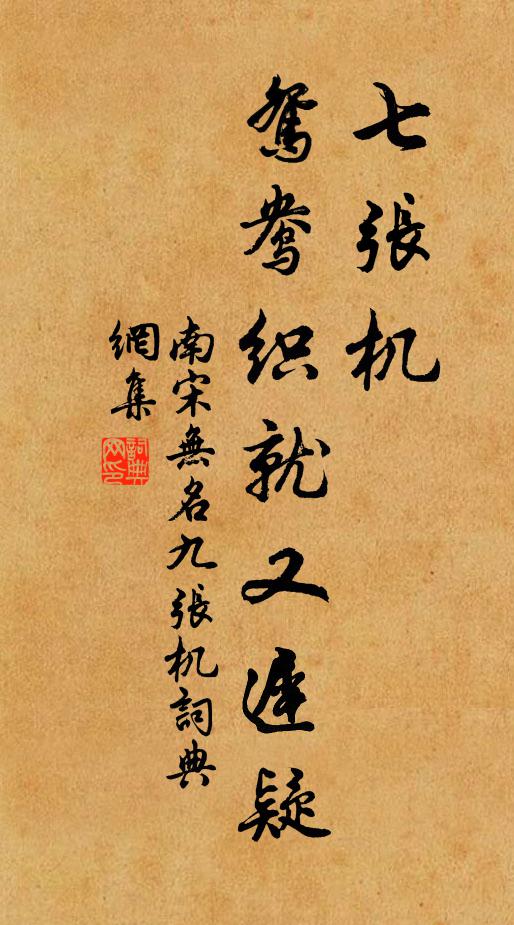 七張机
鴛鴦织就又遲疑
南宋無名九張机詞典
網集
詞典網印